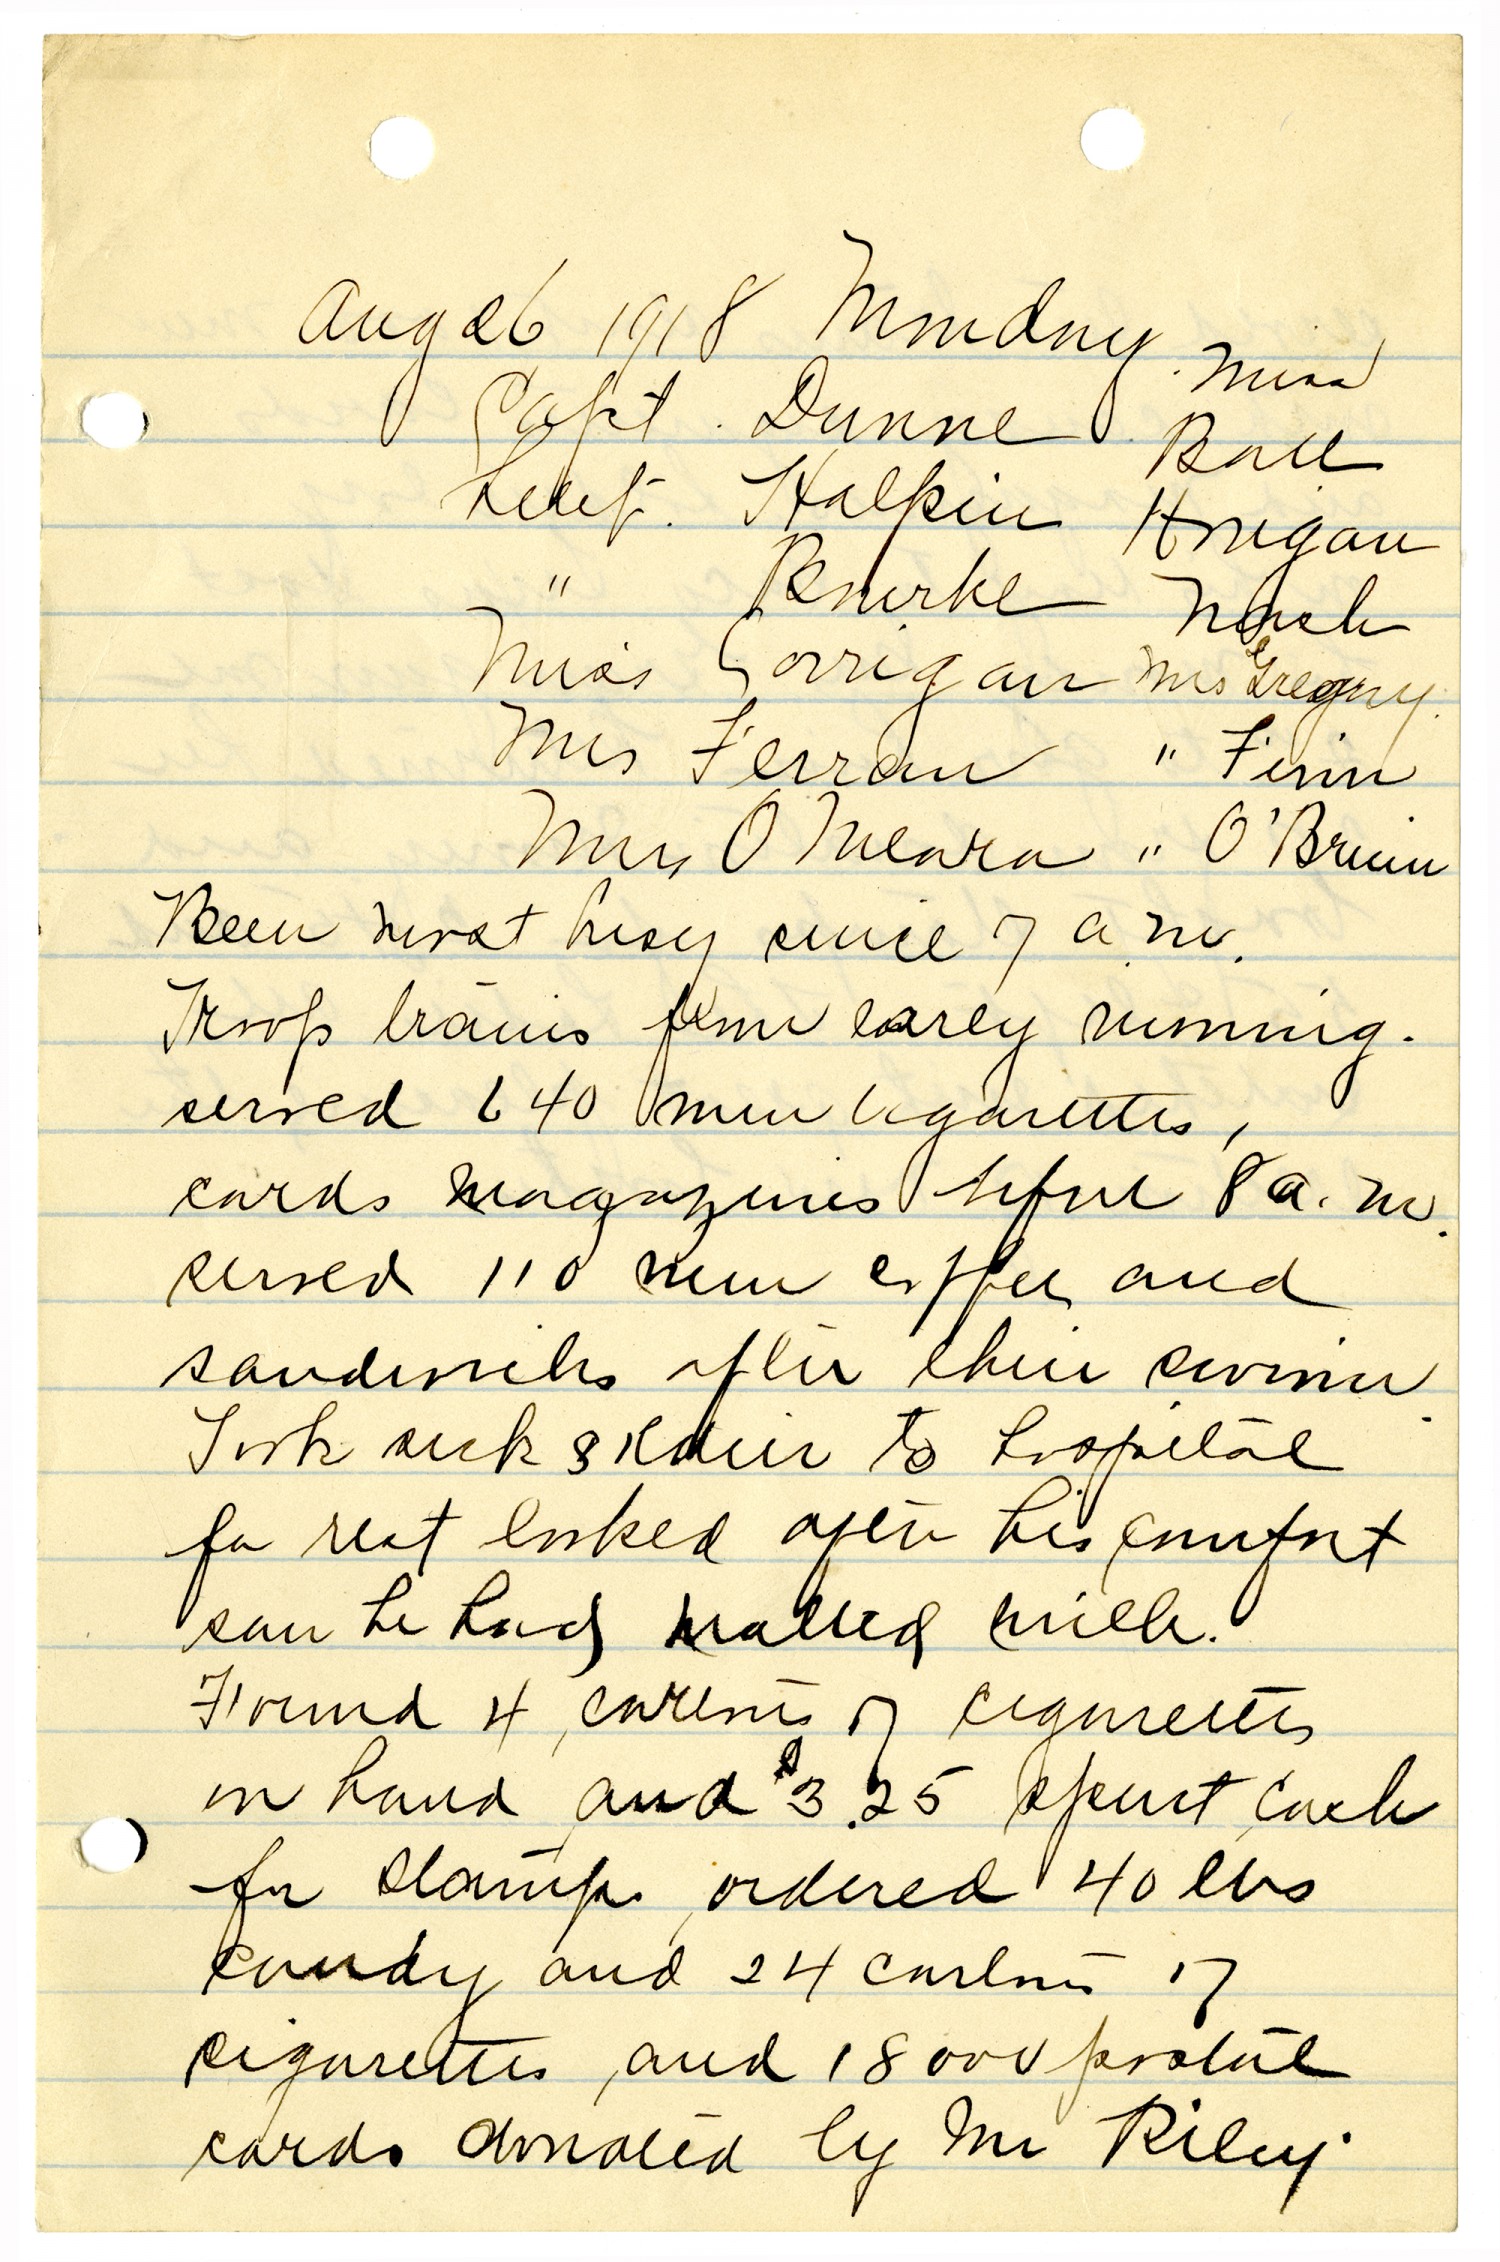 Aug 26 1918 Monday
Capt. Dunne Miss
Lieut. Halpin Ball
" Bourke Horigan
Miss Corrigan Nash
Mrs Ferran Mrs Gregory.
Mrs O'Meara " Finn
" O'Brien
Been most busy since 7 a.m.
Troop trains from early morning.
served 640 men cigarettes,
cards magazines before 8 a.m.
served 110 men coffee and
sandwiches after their swim.
Took sick soldier to hospital
for rest looked after his comfort
saw he had malted milk.
Found 4 cartons of cigarettes
on hand and $3.25 spent cash
for stamps, ordered 40 lbs
candy and 24 cartons of
cigarettes, and 18000 postal
cards donated by Mr Riley.